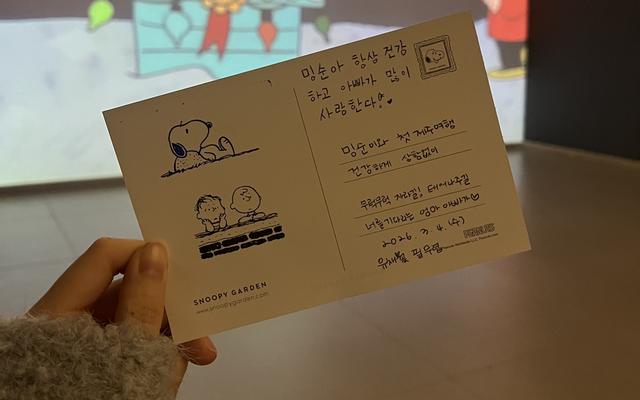 밍순아 항상 건강
하고 아빠가 많이
사랑한다!♥
밍순이와 첫 제주여행
건강하게 상함없이
무럭무럭 자라길, 태어나주길
너를 기다리는 엄마 아빠가♡
2026. 3. 4. (수)
PEANUTS
SNOOPY GARDEN
www.snoopygarden.com